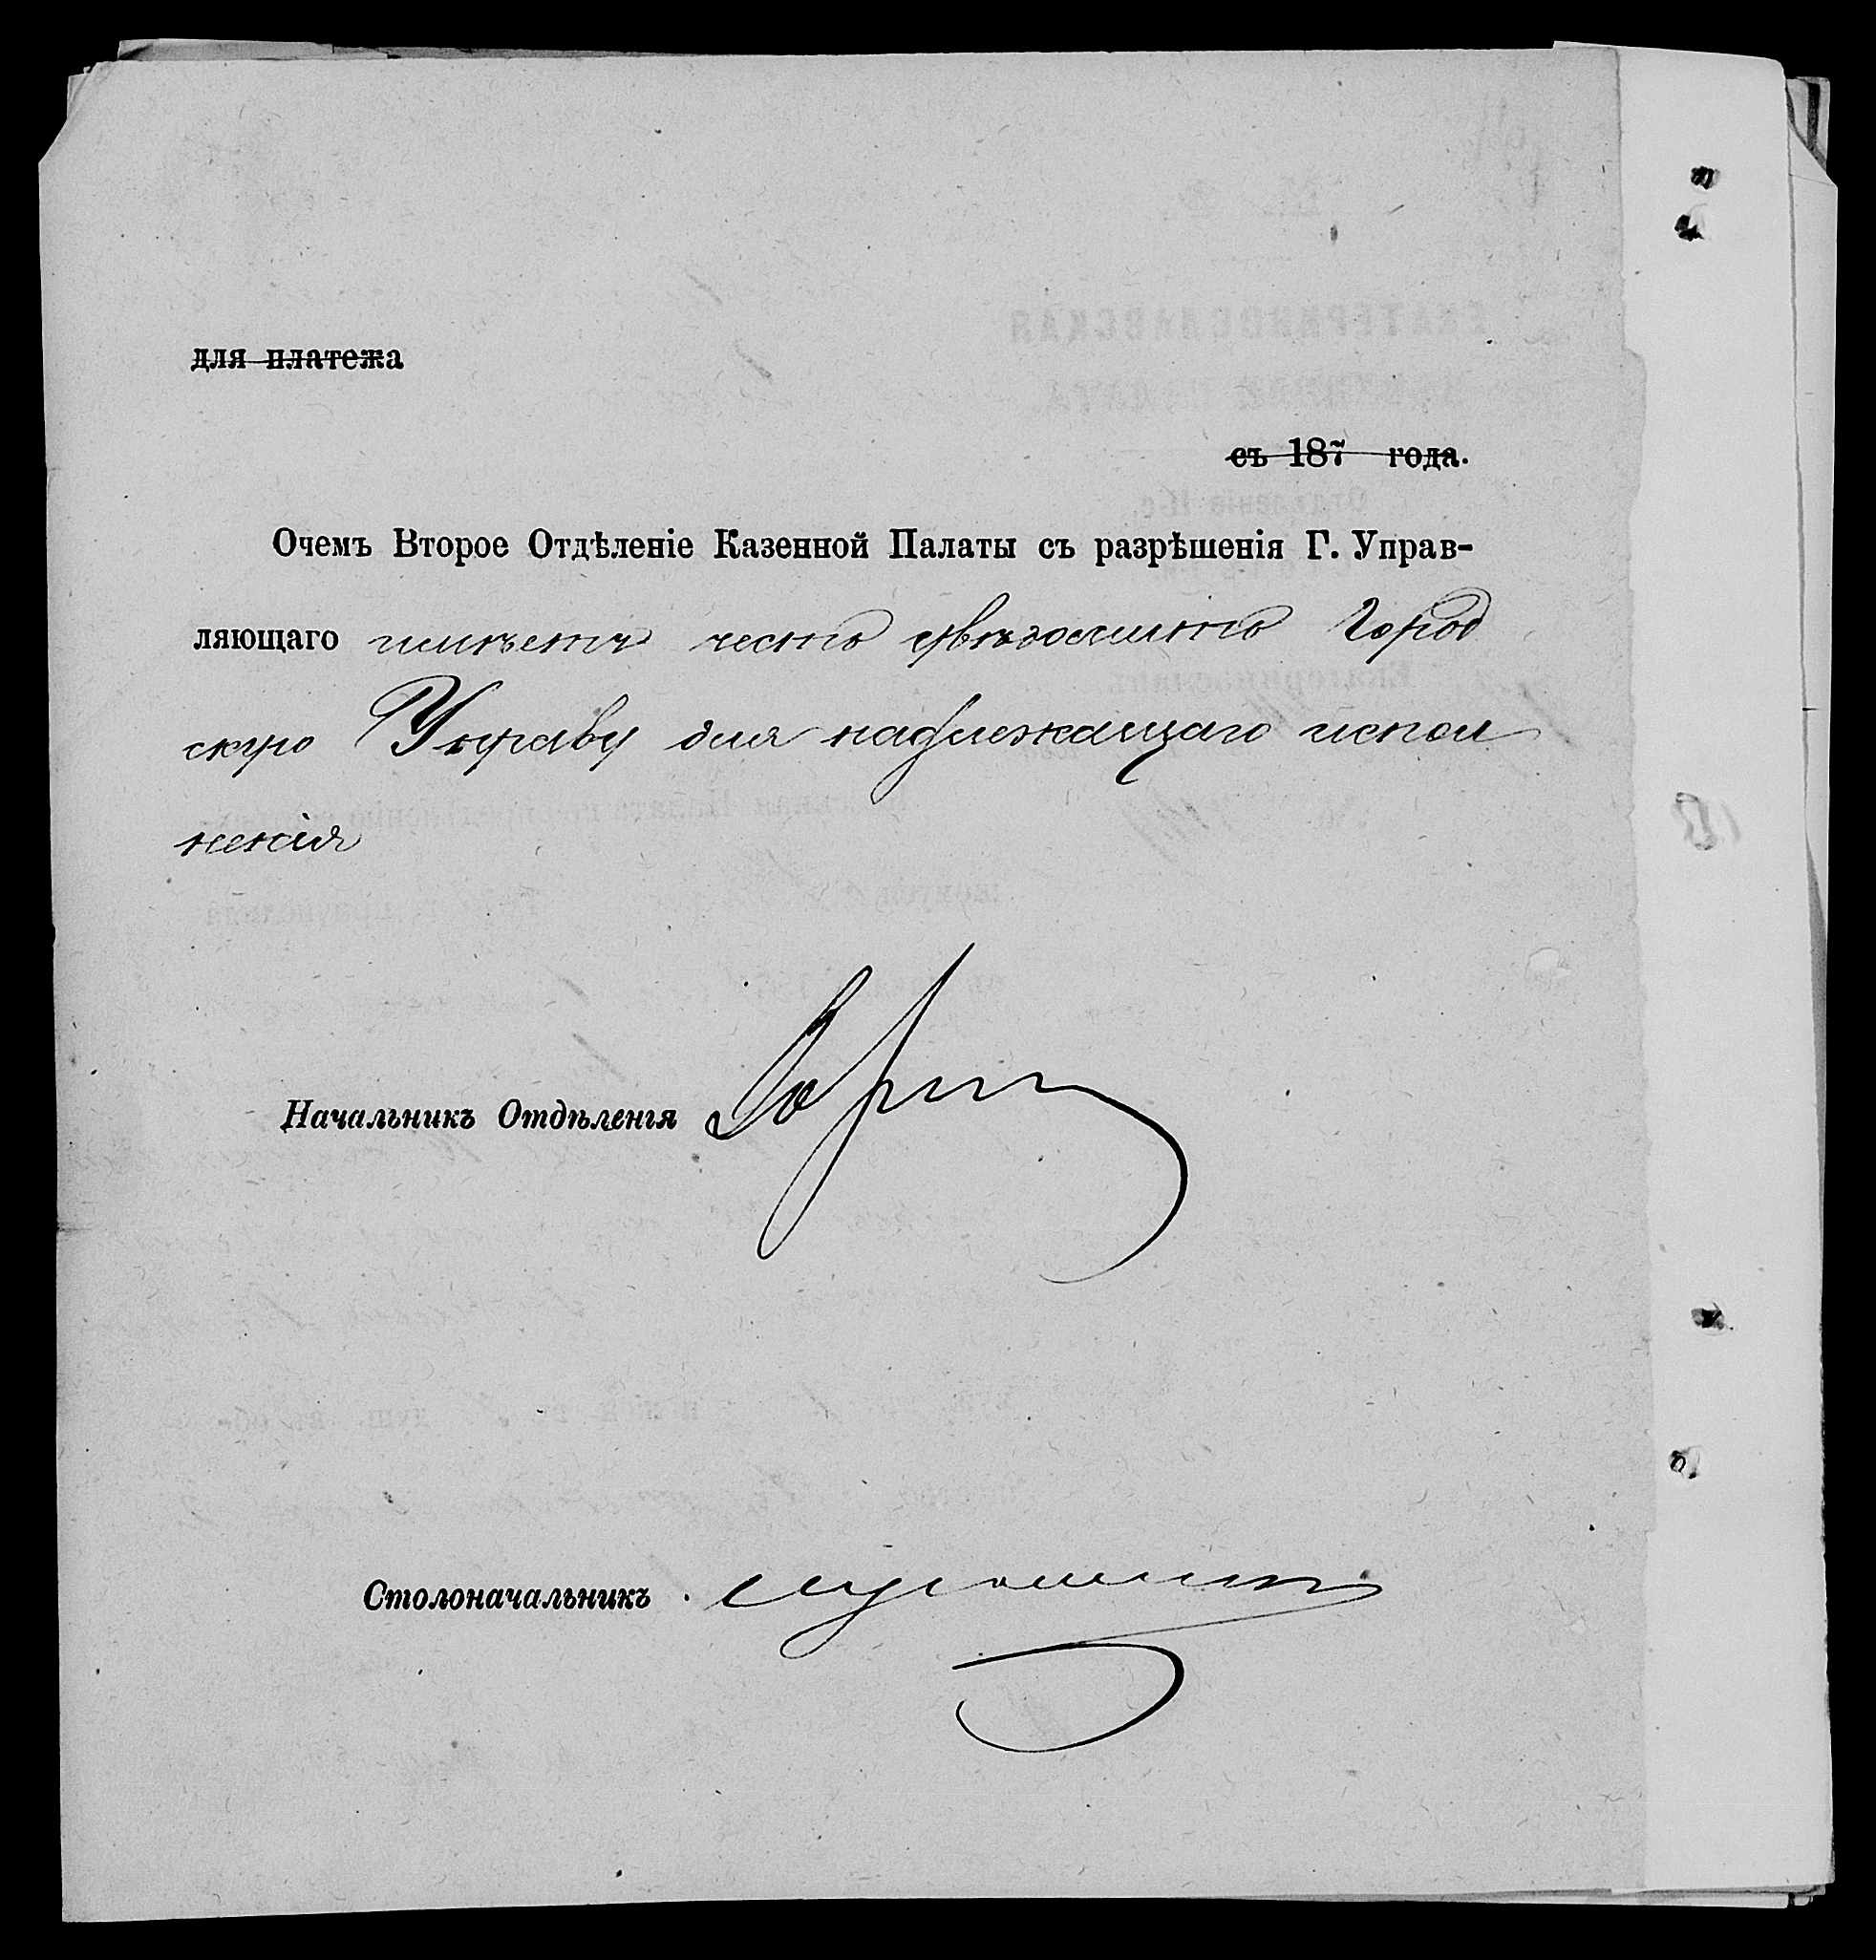 для платежа
съ 187 года.
Очемъ Второе Отдѣленіе Казенной Палаты съ разрѣшенія Г. Управ-
ляющаго имѣетъ честь увѣдомить Город
скую Управу для надлежащаго испол
ненія
Начальникъ Отдѣленія
Столоначальникъ